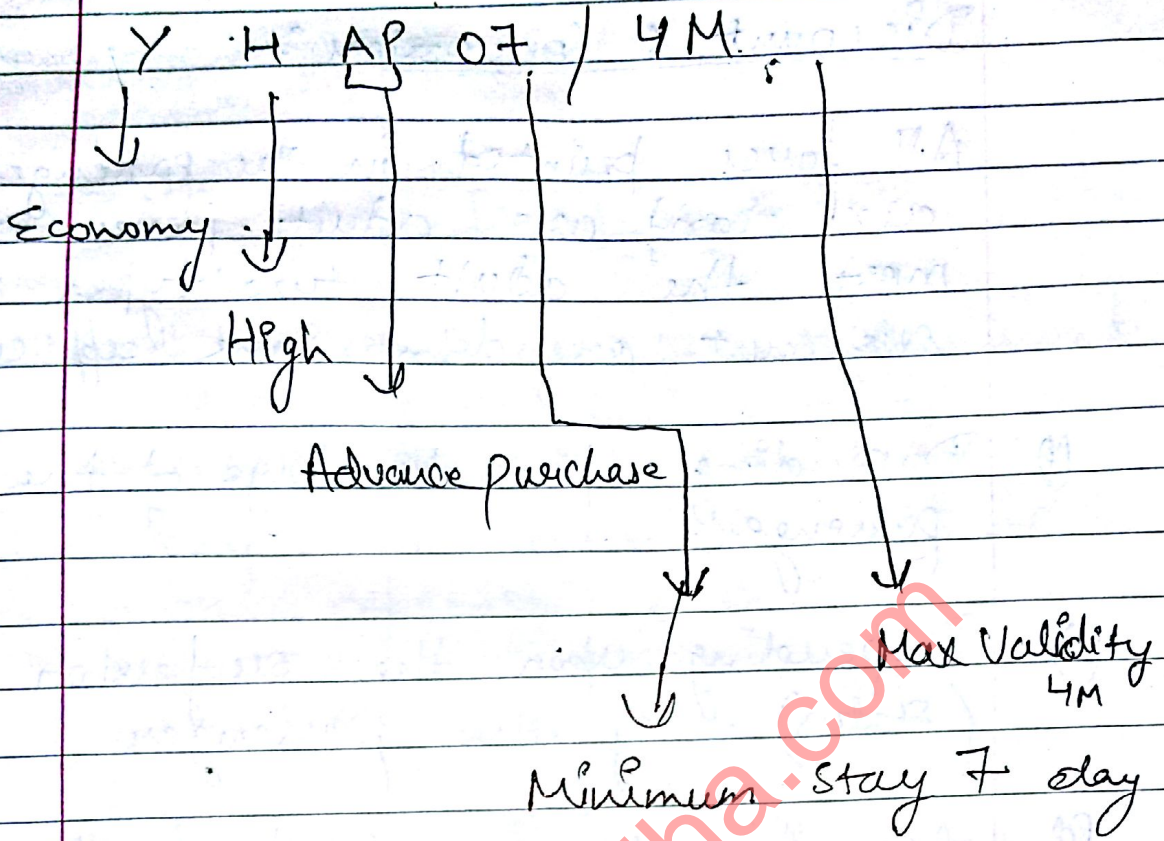 Y H AP 07 / 4 M
Economy
High
Advance purchase
Max Validity
4M
Minimum stay 7 day
ha.com